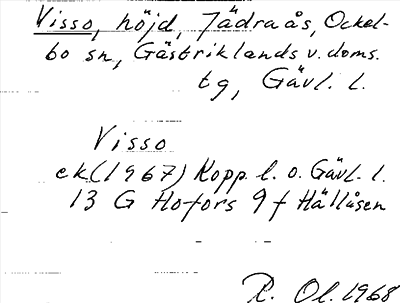 Visso, höjd, Jädraås, Ockel-
bo sn, Gästriklands v. doms.
tg, Gävl. l.
Visso
ek (1967) Kopp. l. o. Gävl. l.
13 G Hofors 9 f Hällåsen
R. Ol. 1968